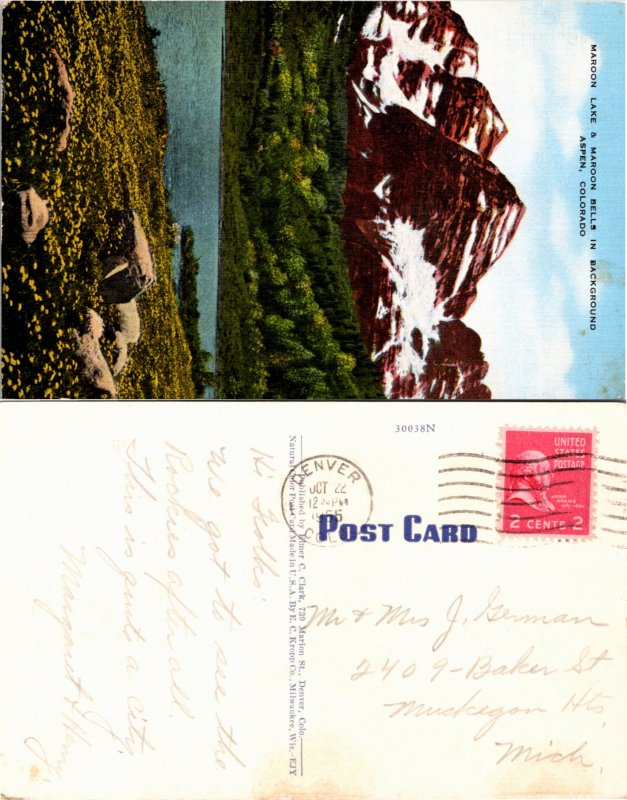 MAROON LAKE & MAROON BELLS IN BACKGROUND
ASPEN, COLORADO
30038N
Hi Folks:
We got to see the
Rockies after all.
This is quite a city.
Margaret &
Published by Elmer C. Clark, 739 Marion St., Denver, Colo.
Natural Color Post Card Made in U.S.A. By E. C. Kropp Co., Milwaukee, Wis.-EJY
DENVER
OCT 22
12 PM
1955
COLO
POST CARD
UNITED
STATES
POSTAGE
JOHN
ADAMS
2 CENTS 2
Mr & Mrs J. German
2409-Baker St
Muskegon Hts
Mich.